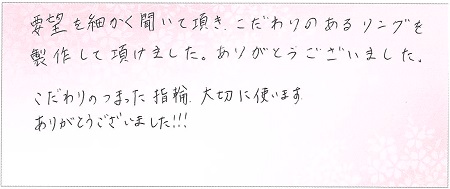 要望を細かく聞いて頂き、こだわりのあるリングを
製作して頂けました。ありがとうございました。
こだわりのつまった指輪、大切に使います。
ありがとうございました!!!